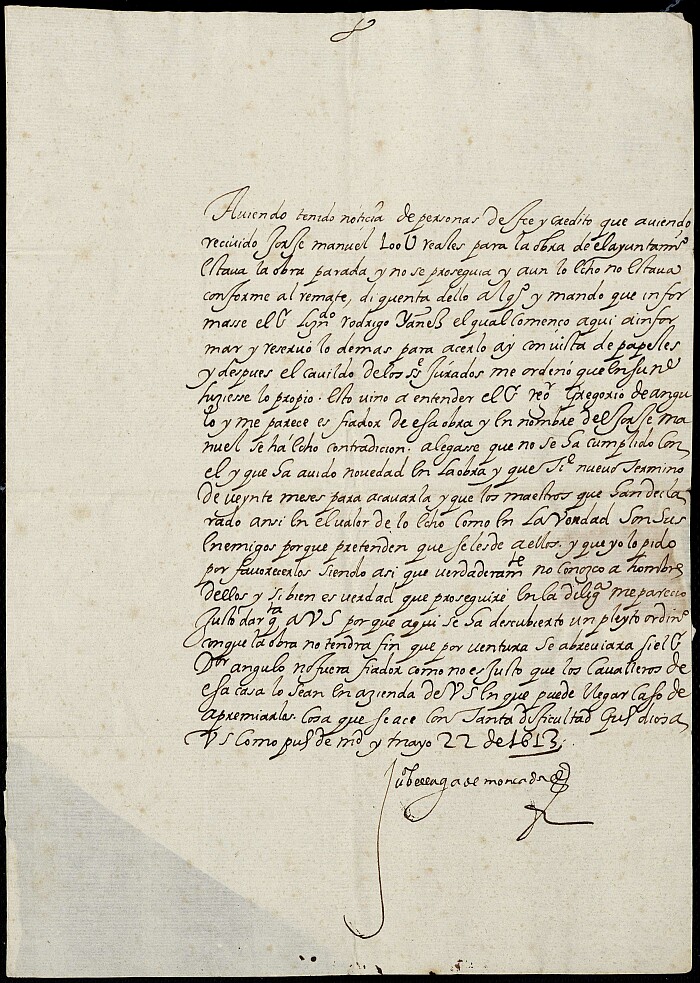 Auiendo tenido noticia de personas de fee y credito que auiendo
reciuido Jorje manuel 100U reales para la obra de el ayuntamto
estaua la obra parada y no se proseguia y aun lo echo no estaua
conforme al remate, di quenta dello a
y mando que infor
masse el Sr Lizdo rodrigo Yañez el qual començo aqui a infor
mar y reseruo lo demas para acerlo ay con vista de papeles
y despues el cauildo de los Sres Jurados me ordino que
fuziesse lo propio. Esto vino a entender el Sr regor Gregorio de angu
lo y me parece es fiador de esa obra y en nombre del Jorje ma
nuel se ha echo contradicion. alegasse que no se ha cumplido con
el y que ha auido nouedad en la obra y que
nueuo termino
de veynte meses para acauarla y que los maestros que han decla
rado ansi en el valor de lo echo como en la verdad son sus
enemigos porque pretenden que se les de a ellos. y que yo lo pido
por fauorecerlos siendo asi que verdaderamte no conozco a hombre
dellos y si bien es verdad que proseguire en la diliga me parecio
justo dar qta a VS porque aqui se ha descubierto un pleyto ordino
con que la obra no tendra fin que por ventura se abreuiara si el Sr
Dor angulo no fuera fiador como no es justo que los caualleros de
esa casa lo sean en azienda de VS en que puede llegar caso de
apremiarles. cosa que se ace con tanta dificultad
gude dios a
VS como puede de md y mayo 22 de 1613.
Juo belluga de moncada